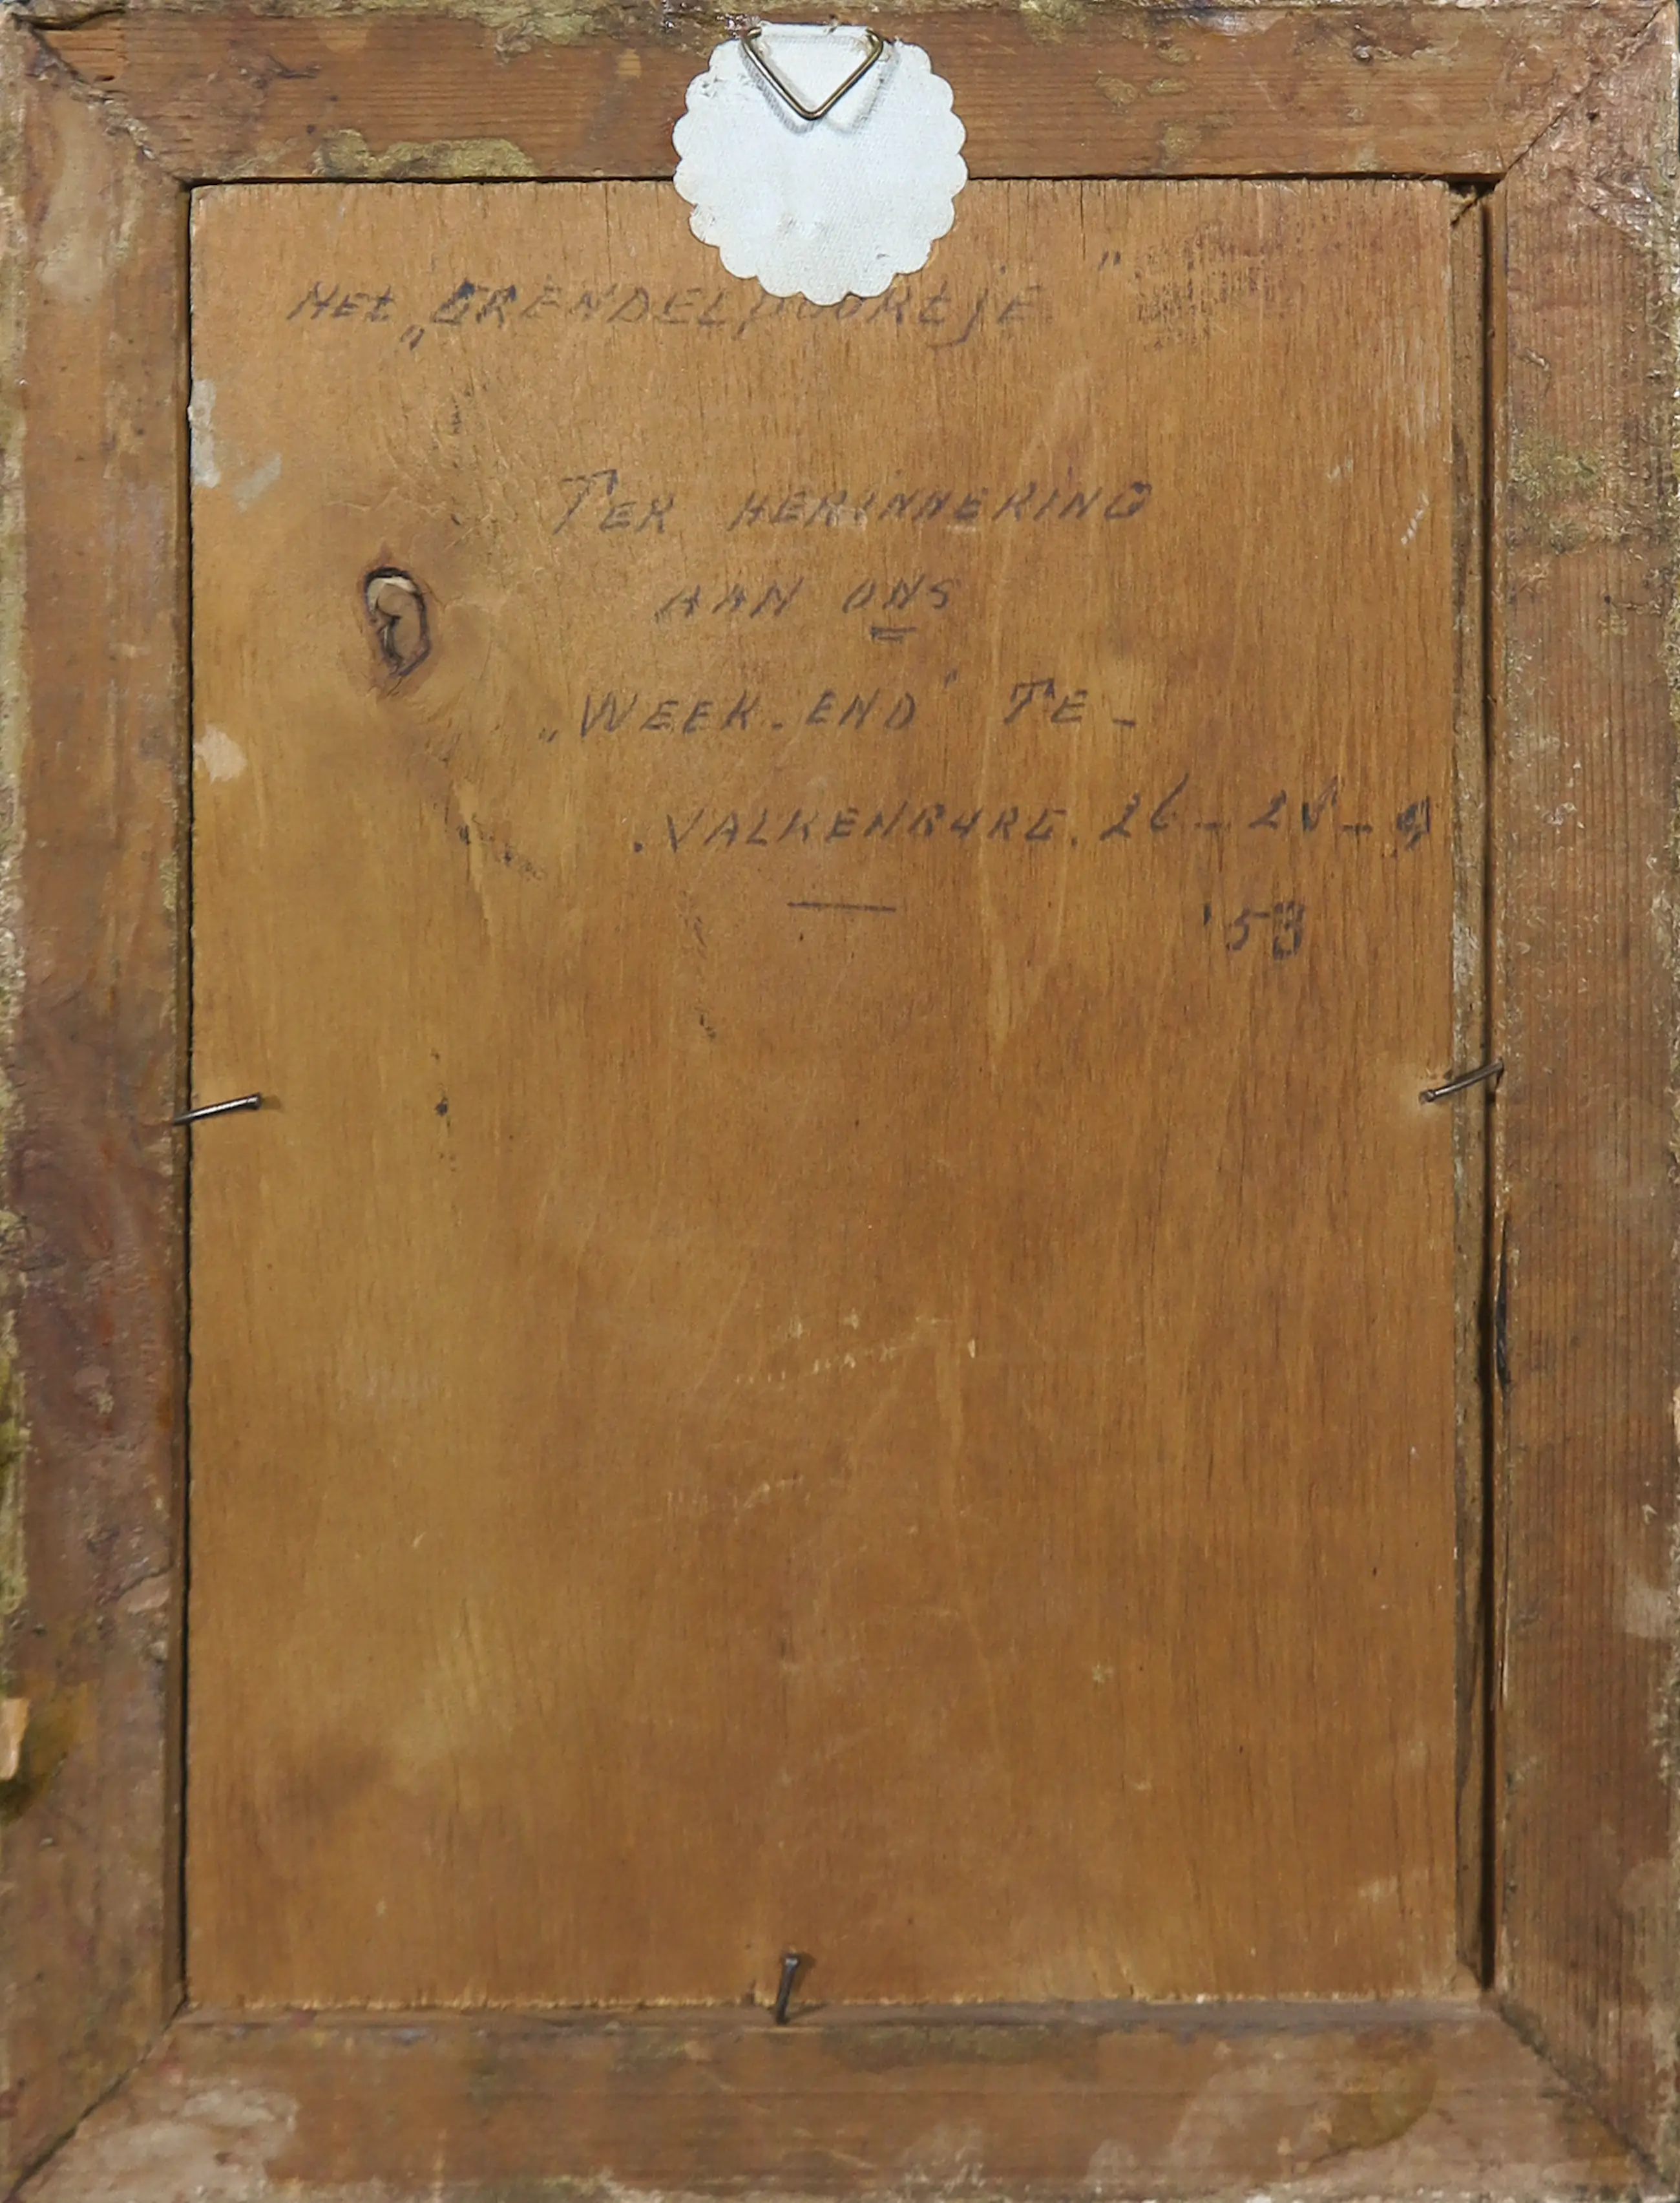 HEt „GRENDELpOORtjE"
TER HERINNERING
AAN ONS
„WEEK-END" TE -
. VALKENBURG. 26 - 28 - 9
'53